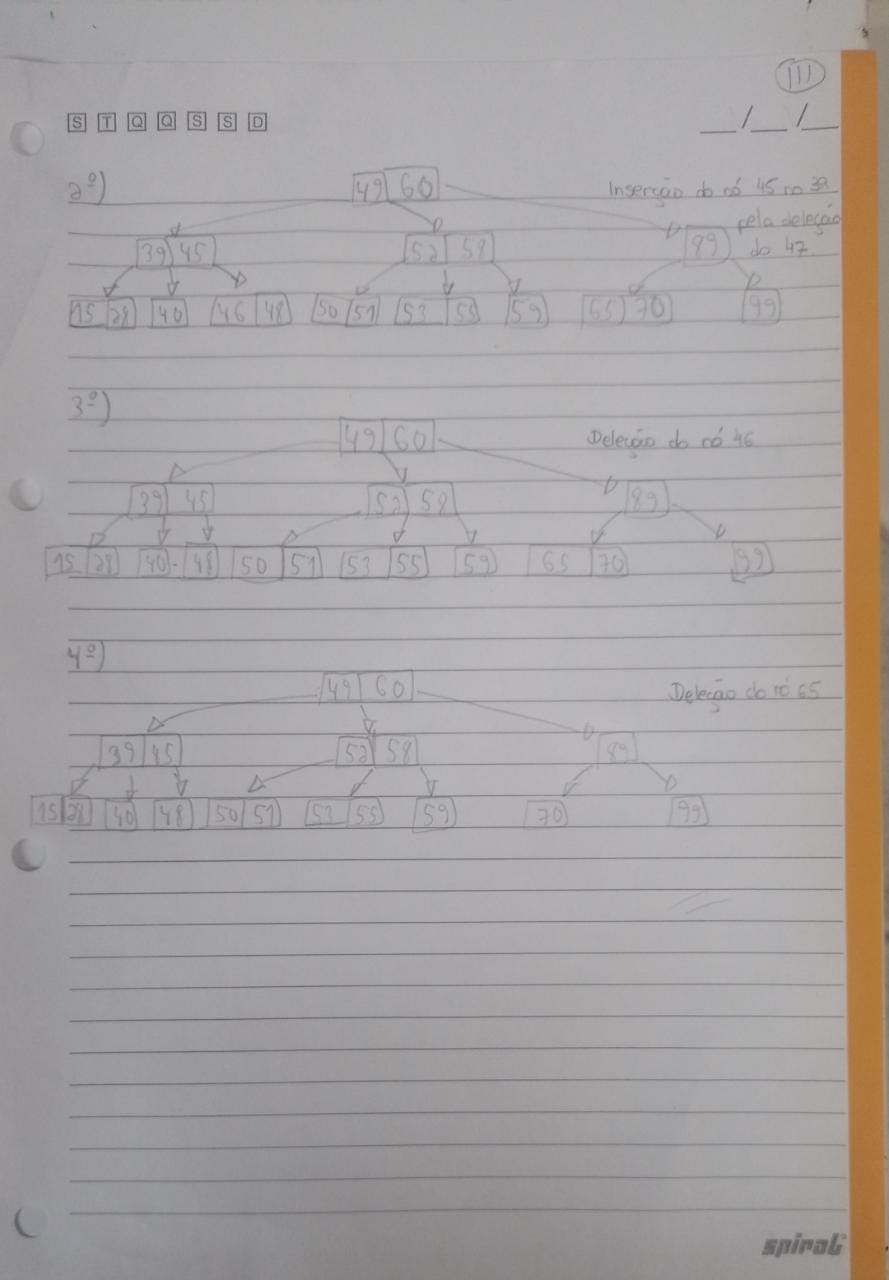 III
S T Q Q S S D
__/__/__
2º)
49 60
Inserção do nó 45 no 39
pela deleção
do 47.
39 45 52 58 89
15 28 40 46 48 50 51 53 55 59 65 70 99
3º)
49 60
Deleção do nó 46
39 45 52 58 89
15 28 40 48 50 51 53 55 59 65 70 99
4º)
49 60
Deleção do nó 65
39 45 52 58 89
15 28 40 48 50 51 53 55 59 70 99
spiral